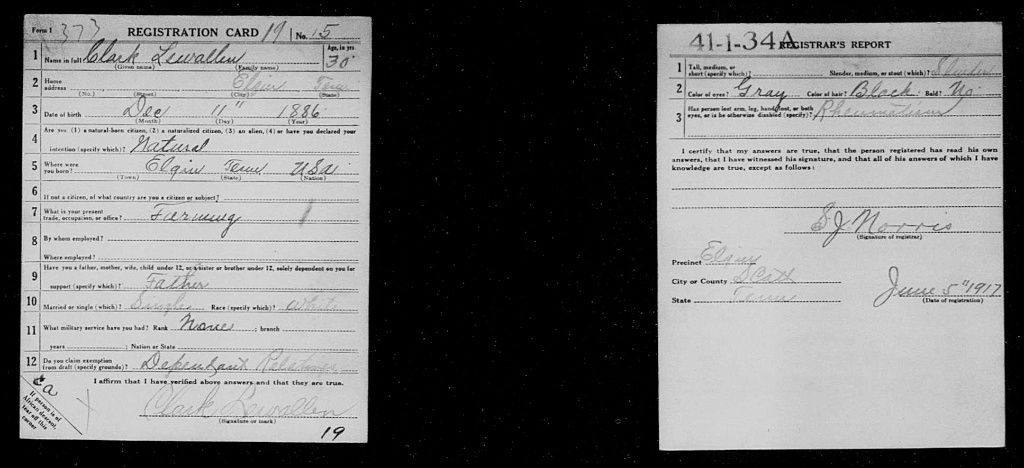 Form 1 373 REGISTRATION CARD 19 No. 15
1 Name in full Clark Lewallen Age, in yrs. 30
(Given name) (Family name)
2 Home address Elgin Tenn
(No.) (Street) (City) (State)
3 Date of birth Dec 11" 1886
(Month) (Day) (Year)
4 Are you (1) a natural-born citizen, (2) a naturalized citizen, (3) an alien, (4) or have you declared your
intention (specify which)? Natural
5 Where were you born? Elgin Tenn USA
(Town) (State) (Nation)
6 If not a citizen, of what country are you a citizen or subject?
7 What is your present trade, occupation, or office? Farming
8 By whom employed?
Where employed?
9 Have you a father, mother, wife, child under 12, or a sister or brother under 12, solely dependent on you for
support (specify which)? Father
10 Married or single (which)? Single Race (specify which)? White
11 What military service have you had? Rank None ; branch
years ; Nation or State
12 Do you claim exemption from draft (specify grounds)? Dependant
I affirm that I have verified above answers and that they are true.
Clark Lewallen
(Signature or mark)
If person is of
African descent,
tear off this
corner
19
41-1-34A REGISTRAR'S REPORT
1 Tall, medium, or short (specify which)? Slender, medium, or stout (which)? Slender
2 Color of eyes? Gray Color of hair? Black Bald? No
3 Has person lost arm, leg, hand, foot, or both
eyes, or is he otherwise disabled (specify)? Rheumatism
I certify that my answers are true, that the person registered has read his own
answers, that I have witnessed his signature, and that all of his answers of which I have
knowledge are true, except as follows:
S J Norris
(Signature of registrar)
Precinct
City or County Scott
State Tenn
June 5" 1917
(Date of registration)